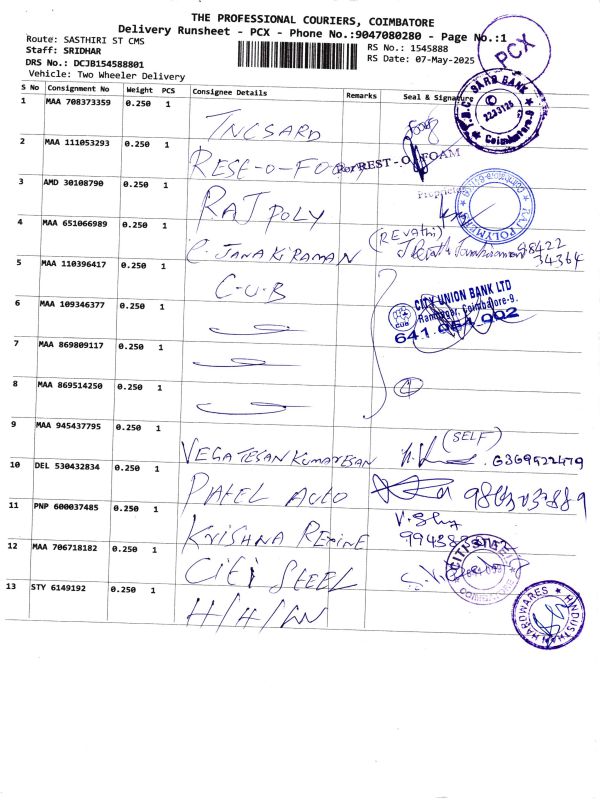 THE PROFESSIONAL COURIERS, COIMBATORE
Delivery Runsheet - PCX - Phone No.:9047080280 - Page No.:1
Route: SASTHIRI ST CMS
RS No.: 1545888
Staff: SRIDHAR
RS Date: 07-May-2025
DRS No.: DCJB154588801
Vehicle: Two Wheeler Delivery
PCX
S No Consignment No Weight PCS Consignee Details Remarks Seal & Signature
1 MAA 708373359 0.250 1
2 MAA 111053293 0.250 1 RESE-O-FOAM For REST-O-FOAM
Proprietor
3 AMD 30108790 0.250 1 RAJ POLY
RAJ POLYMERS
4 MAA 651066989 0.250 1 C. JANAKIRAMAN (REVathi) 98422 34364
5 MAA 110396417 0.250 1 C-U-B
CITY UNION BANK LTD
Ramnagar, Coimbatore-9.
CUB 641 054 002
6 MAA 109346377 0.250 1
7 MAA 869809117 0.250 1
8 MAA 869514250 0.250 1 4
9 MAA 945437795 0.250 1 VEGATESAN KUMARESAN (SELF)
10 DEL 530432834 0.250 1 PATEL AUTO
11 PNP 600037485 0.250 1 KRISHNA REXINE
12 MAA 706718182 0.250 1 CITI STEEL
CITI STEEL COIMBATORE
13 STY 6149192 0.250 1 H/H/W
HINDUSTHAN HARDWARES